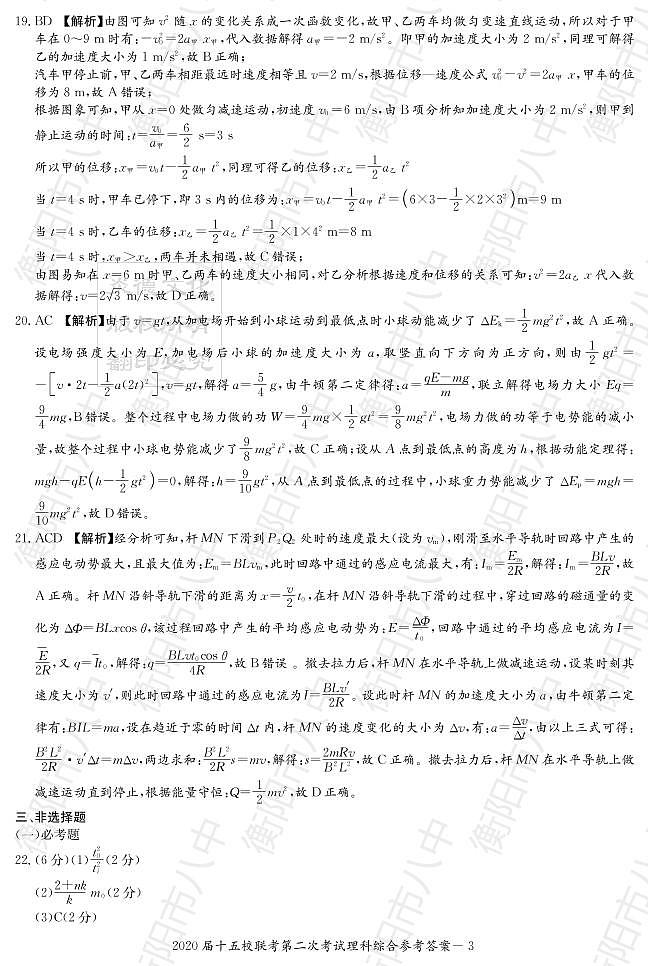 19. BD 【解析】由图可知 v² 随 x 的变化关系成一次函数变化,故甲、乙两车均做匀变速直线运动,所以对于甲
车在 0～9 m 时有:−v₀²=2a甲 x甲,代入数据解得 a甲=−2 m/s²。即甲的加速度大小为 2 m/s²,同理可解得
乙的加速度大小为 1 m/s²,故 B 正确;
汽车甲停止前,甲、乙两车相距最远时速度相等且 v=2 m/s,根据位移—速度公式 v₀²−v²=2a甲 x,甲车的位
移为 8 m,故 A 错误;
根据图象可知,甲从 x=0 处做匀减速运动,初速度 v₀=6 m/s,由 B 项分析知加速度大小为 2 m/s²,则甲到
静止运动的时间:t=v₀/a甲=6/2 s=3 s
所以甲的位移:x甲=v₀t−1/2 a甲 t²,同理可得乙的位移:x乙=1/2 a乙 t²
当 t=4 s 时,甲车已停下,即 3 s 内的位移为:x甲=v₀t−1/2 a甲 t²=(6×3−1/2×2×3²)m=9 m
当 t=4 s 时,乙车的位移:x乙=1/2 a乙 t²=1/2×1×4² m=8 m
当 t=4 s 时,x甲>x乙,两车并未相遇,故 C 错误;
由图易知在 x=6 m 时甲、乙两车的速度大小相同,对乙分析根据速度和位移的关系可知:v²=2a乙 x 代入数
据解得:v=2√3 m/s,故 D 正确。
20. AC 【解析】由于 v=gt,从加电场开始到小球运动到最低点时小球动能减少了 ΔEₖ=1/2 mg²t²,故 A 正确。
设电场强度大小为 E,加电场后小球的加速度大小为 a,取竖直向下方向为正方向,则由 1/2 gt²=
−[v·2t−1/2 a(2t)²],v=gt,解得 a=5/4 g,由牛顿第二定律得:a=(qE−mg)/m,联立解得电场力大小 Eq=
9/4 mg,B 错误。整个过程中电场力做的功 W=9/4 mg×1/2 gt²=9/8 mg²t²,电场力做的功等于电势能的减小
量,故整个过程中小球电势能减少了 9/8 mg²t²,故 C 正确;设从 A 点到最低点的高度为 h,根据动能定理得:
mgh−qE(h−1/2 gt²)=0,解得:h=9/10 gt²,从 A 点到最低点的过程中,小球重力势能减少了 ΔEₚ=mgh=
9/10 mg²t²,故 D 错误。
21. ACD 【解析】经分析可知,杆 MN 下滑到 P₂Q₂ 处时的速度最大(设为 vₘ),刚滑至水平导轨时回路中产生的
感应电动势最大,且最大值为:Eₘ=BLvₘ,此时回路中通过的感应电流最大,有:Iₘ=Eₘ/2R,解得:Iₘ=BLv/2R,故
A 正确。杆 MN 沿斜导轨下滑的距离为 x=v/2 t₀,在杆 MN 沿斜导轨下滑的过程中,穿过回路的磁通量的变
化为 ΔΦ=BLxcos θ,该过程回路中产生的平均感应电动势为:E̅=ΔΦ/t₀,回路中通过的平均感应电流为 I̅=
E̅/2R,又 q=I̅t₀,解得:q=BLvt₀cos θ/4R,故 B 错误 。撤去拉力后,杆 MN 在水平导轨上做减速运动,设某时刻其
速度大小为 v′,则此时回路中通过的感应电流为 I=BLv′/2R。设此时杆 MN 的加速度大小为 a,由牛顿第二定
律有:BIL=ma,设在趋近于零的时间 Δt 内,杆 MN 的速度变化的大小为 Δv,有:a=Δv/Δt,由以上三式可得:
B²L²/2R·v′Δt=mΔv,两边求和:B²L²/2R s=mv,解得:s=2mRv/B²L²,故 C 正确。撤去拉力后,杆 MN 在水平导轨上做
减速运动直到停止,根据能量守恒:Q=1/2 mv²,故 D 正确。
三、非选择题
(一)必考题
22. (6 分)(1)t₀²/tᵢ²(2 分)
(2)(2+nk)/k m₀(2 分)
(3)C(2 分)
2020 届十五校联考第二次考试理科综合参考答案－3